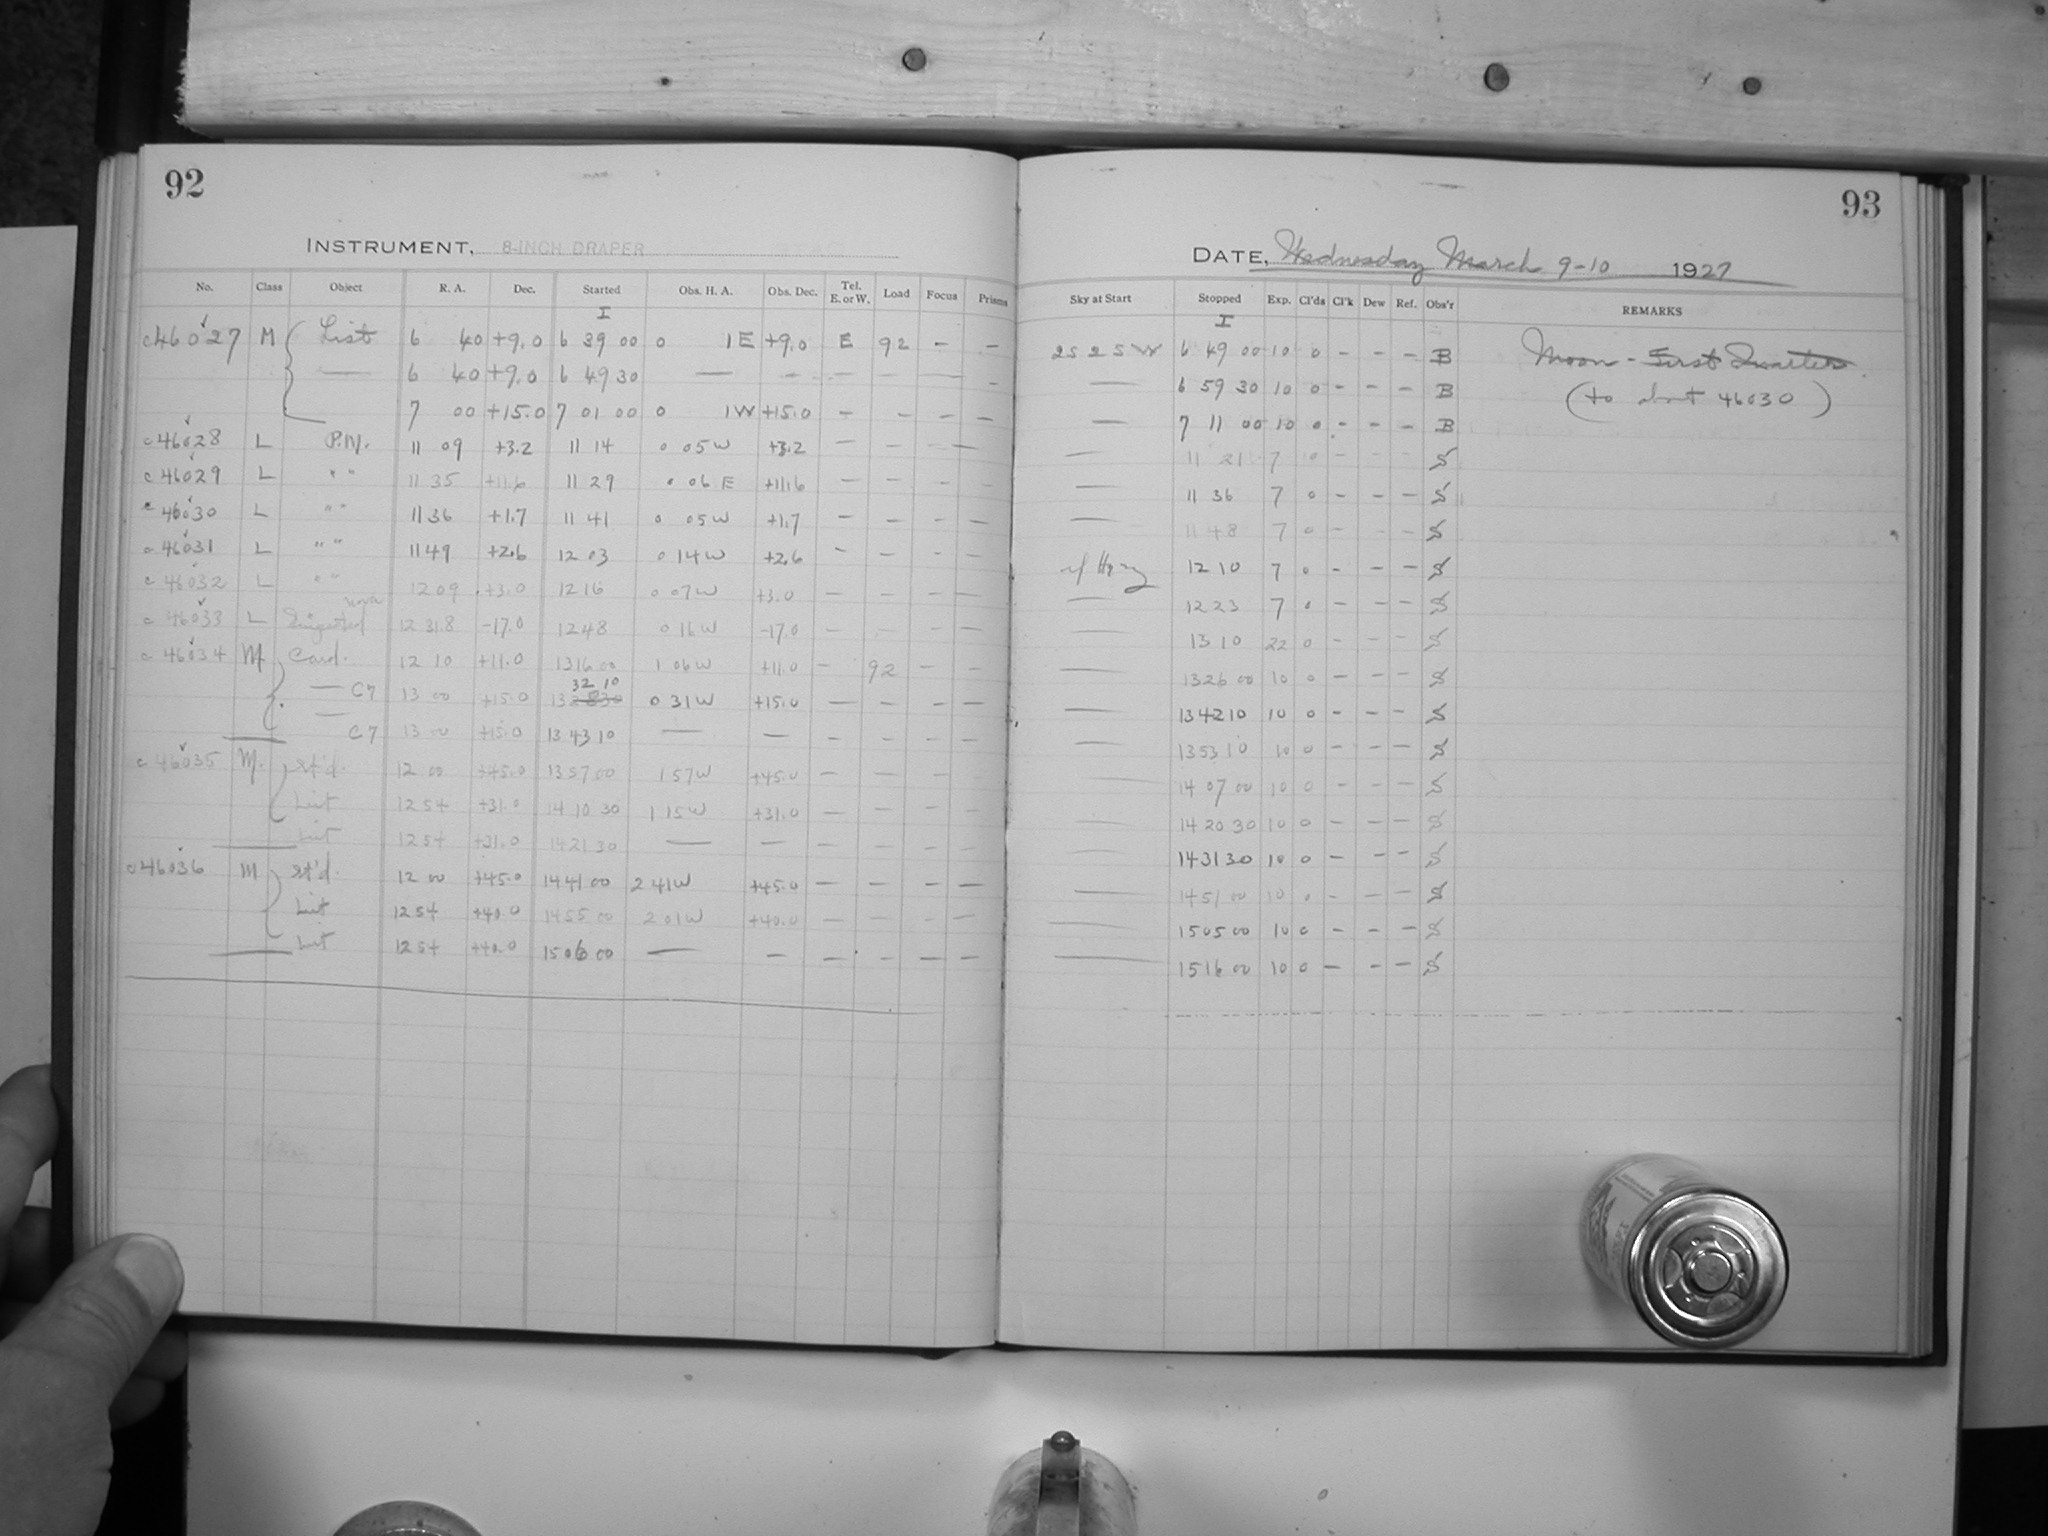 92
93
INSTRUMENT, 8-INCH DRAPER
DATE, Wednesday March 9-10 1927
No. Class Object R. A. Dec. Started Obs. H. A. Obs. Dec. Tel. E. or W. Load Focus Prisms Sky at Start Stopped Exp. Cl'ds Cl'k Dew Ref. Obs'r REMARKS
I I
c46027 M List 6 40 +9.0 6 39 00 0 1E +9.0 E 92 - - 2S 2S W 6 49 00 10 0 - - - B Moon - First Quarter
— 6 40 +9.0 6 49 30 — - - - - - — 6 59 30 10 0 - - - B (to about 46030)
7 00 +15.0 7 01 00 0 1W +15.0 - - - - — 7 11 00 10 0 - - - B
c46028 L P.M. 11 09 +3.2 11 14 0 05W +3.2 - - - - — 11 21 7 0 - - - S
c46029 L " " 11 35 +11.6 11 29 0 06E +11.6 - - - - — 11 36 7 0 - - - S
c46030 L " " 11 36 +1.7 11 41 0 05W +1.7 - - - - — 11 48 7 0 - - - S
c46031 L " " 11 49 +2.6 12 03 0 14W +2.6 - - - - Hazy 12 10 7 0 - - - S
c46032 L " " 12 09 +3.0 12 16 0 07W +3.0 - - - - — 12 23 7 0 - - - S
c46033 L nova 12 31.8 -17.0 12 48 0 16W -17.0 - - - - — 13 10 22 0 - - - S
c46034 M Card. 12 10 +11.0 13 16 00 1 06W +11.0 - 92 - - — 13 26 00 10 0 - - - S
32 10
— C7 13 00 +15.0 13 0 31W +15.0 - - - - — 13 42 10 10 0 - - - S
— C7 13 00 +15.0 13 43 10 — - - - - - — 13 53 10 10 0 - - - S
c46035 M. st'd. 12 00 +45.0 13 57 00 1 57W +45.0 - - - — 14 07 00 10 0 - - - S
List 12 54 +31.0 14 10 30 1 15W +31.0 - - - - — 14 20 30 10 0 - - - S
List 12 54 +31.0 14 21 30 — - - - - - — 14 31 30 10 0 - - - S
c46036 M st'd. 12 00 +45.0 14 41 00 2 41W +45.0 - - - - — 14 51 00 10 0 - - - S
List 12 54 +40.0 14 55 00 2 01W +40.0 - - - - — 15 05 00 10 0 - - - S
List 12 54 +40.0 15 06 00 — - - - - - — 15 16 00 10 0 - - - S